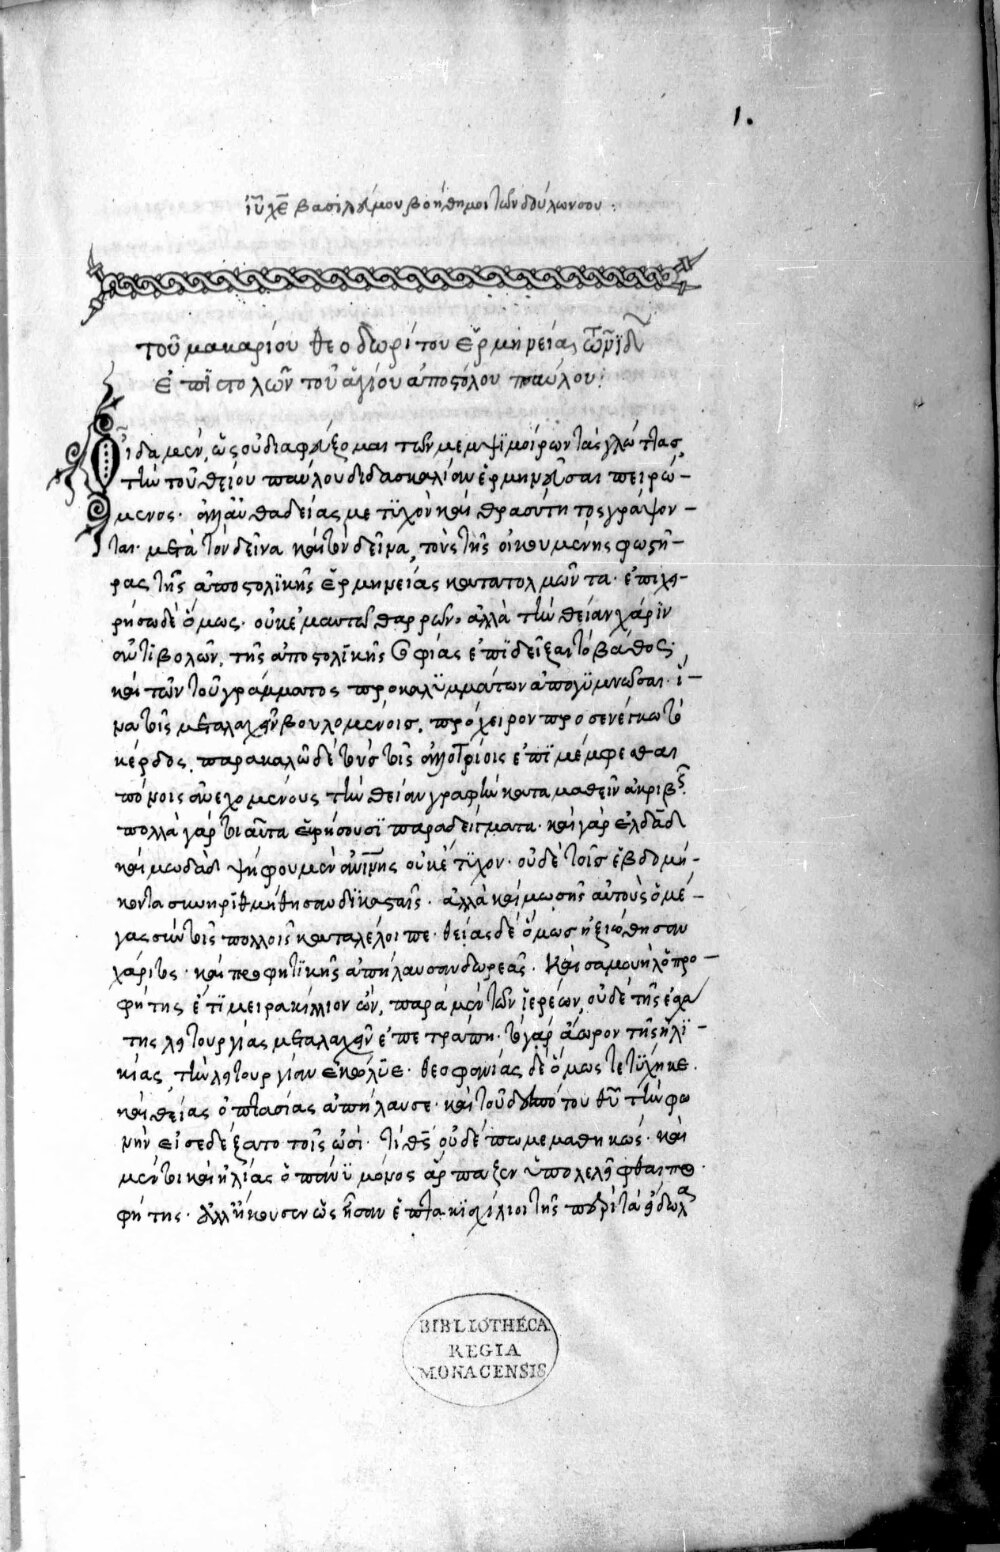 1.
ἰῦ χε̅ βασιλεῦ μου βοήθη μοι τῶν δούλων σου:
τοῦ μακαρίου θεοδωρίτου ἑρμηνείας τῶν ιδ
ἐπιστολῶν τοῦ ἁγίου ἀποστόλου παύλου:
Οἶδα μὲν, ὡς οὐ διαφεύξομαι τῶν μεμψιμοίρων τὰς γλώττας,
τὴν τοῦ θείου παύλου διδασκαλίαν ἑρμηνεῦσαι πειρώ-
μενος. ἀλλ' αὐθαδείας με τυχὸν καὶ θρασύτητος γράψον-
ται· μετὰ τὸν δεῖνα καὶ τὸν δεῖνα, τοὺς τῆς οἰκουμένης φωστῆ-
ρας τῆς ἀποστολικῆς ἑρμηνείας κατατολμῶντα· ἐπιχει-
ρήσω δὲ ὅμως. οὐκ ἐμαυτῶ θαρρῶν. ἀλλὰ τὴν θείαν χάριν
ἀντιβολῶν, τῆς ἀποστολικῆς σοφίας ἐπιδεῖξαι τὸ βάθος·
καὶ τῶν τοῦ γράμματος προκαλυμμάτων ἀπογυμνῶσαι· ἵ-
να τοῖς μεταλαχεῖν βουλομένοις, πρόχειρον προσενέγκω τὸ
κέρδος. παρακαλῶ δὲ τοὺς τοῖς ἀλλοτρίοις ἐπιμέμφεσθαι
πόνοις ἀνεχομένους τὴν θείαν γραφὴν καταμαθεῖν ἀκριβῶς.
πολλὰ γὰρ τοιαῦτα εὑρήσουσι παραδείγματα· καὶ γὰρ ἐλδὰδ
καὶ μωδὰδ ψήφου μὲν ἀνθρωπίνης οὐκ ἔτυχον· οὐδὲ τοῖς ἑβδομή-
κοντα συνηριθμήθησαν δικασταῖς. ἀλλὰ καὶ μωσῆς αὐτοὺς ὁ μέ-
γας σὺν τοῖς πολλοῖς καταλέλοιπε· θείας δὲ ὅμως ἠξιώθησαν
χάριτος· καὶ προφητικῆς ἀπήλαυσαν δωρεᾶς. καὶ σαμουὴλ ὁ προ-
φήτης ἔτι μειρακύλλιον ὢν, παρὰ μὲν τῶν ἱερέων, οὐδὲ τῆς ἐσχά
της λειτουργίας μεταλαχεῖν ἐπετράπη· τὸ γὰρ ἄωρον τῆς ἡλι-
κίας τὴν λειτουργίαν ἐκώλυε· θεοφανίας δὲ ὅμως τετύχηκε.
καὶ θείας ὀπτασίας ἀπήλαυσε· καὶ τοῦ δεσπότου θῦ τὴν φω
νὴν εἰσεδέξατο τοῖς ὠσί· τί θς̅ οὐδέπω μεμαθηκώς. καὶ
μέντοι καὶ ἠλίας ὁ πάνυ μόνος ἅρπαξεν ὑπολελεῖφθαι προ
φήτης. ἀλλ' ἤκουσεν ὡς ἦσαν ἑπτακισχίλιοι τῆς περὶ τὰ εἴδωλα
BIBLIOTHECA
REGIA
MONACENSIS